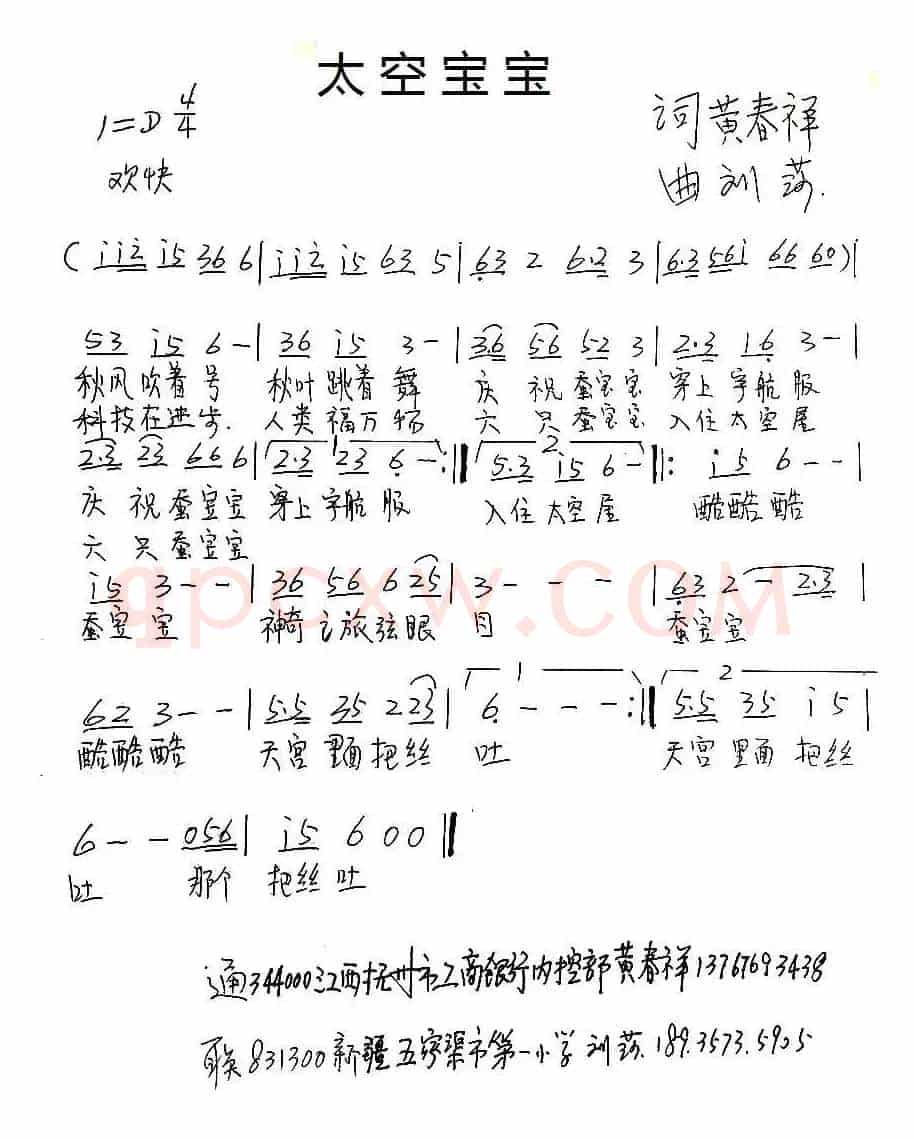 太空宝宝
1=D 4/4
词黄春祥
欢快
曲刘莎.
(i i 2 i 5 3 6 6|i i 2 i 5 6 3 5|6 3 2 6·2 3|6·3 5 6 i 6 6 6 0)|
5 3 i 5 6 -|3 6 i 5 3 -|3 6 5 6 5 2 3|2·3 1 6 3 -|
秋风吹着号 秋叶跳着舞 庆 祝蚕宝宝 穿上宇航服
科技在进步. 人类福万 六 只蚕宝宝 入住太空屋
1 2
2·3 2 3 6 6 6|2·3 2 3 6 -:‖5·3 i 5 6 -‖: i 5 6 - -|
庆 祝蚕宝宝 穿上宇航服 入住太空屋 酷酷酷
六 只蚕宝宝
i 5 3 - -|3 6 5 6 6 2 5|3 - - -|6 3 2 - 2·3|
qpcxw.COM
蚕宝宝 神奇之旅弦眼 目 蚕宝宝
1 2
6 2 3 - -|5·5 3 5 2 2 3|6 - - -:‖5·5 3 5 i 5|
酷酷酷 天宫里面把丝 吐 天宫里面把丝
6 - - 0 5 6|i 5 6 0 0‖
吐 那个 把丝吐
通344000江西抚州市工商银行内控部黄春祥13767693438
联831300新疆五家渠市第一小学刘莎.189.3573.5905